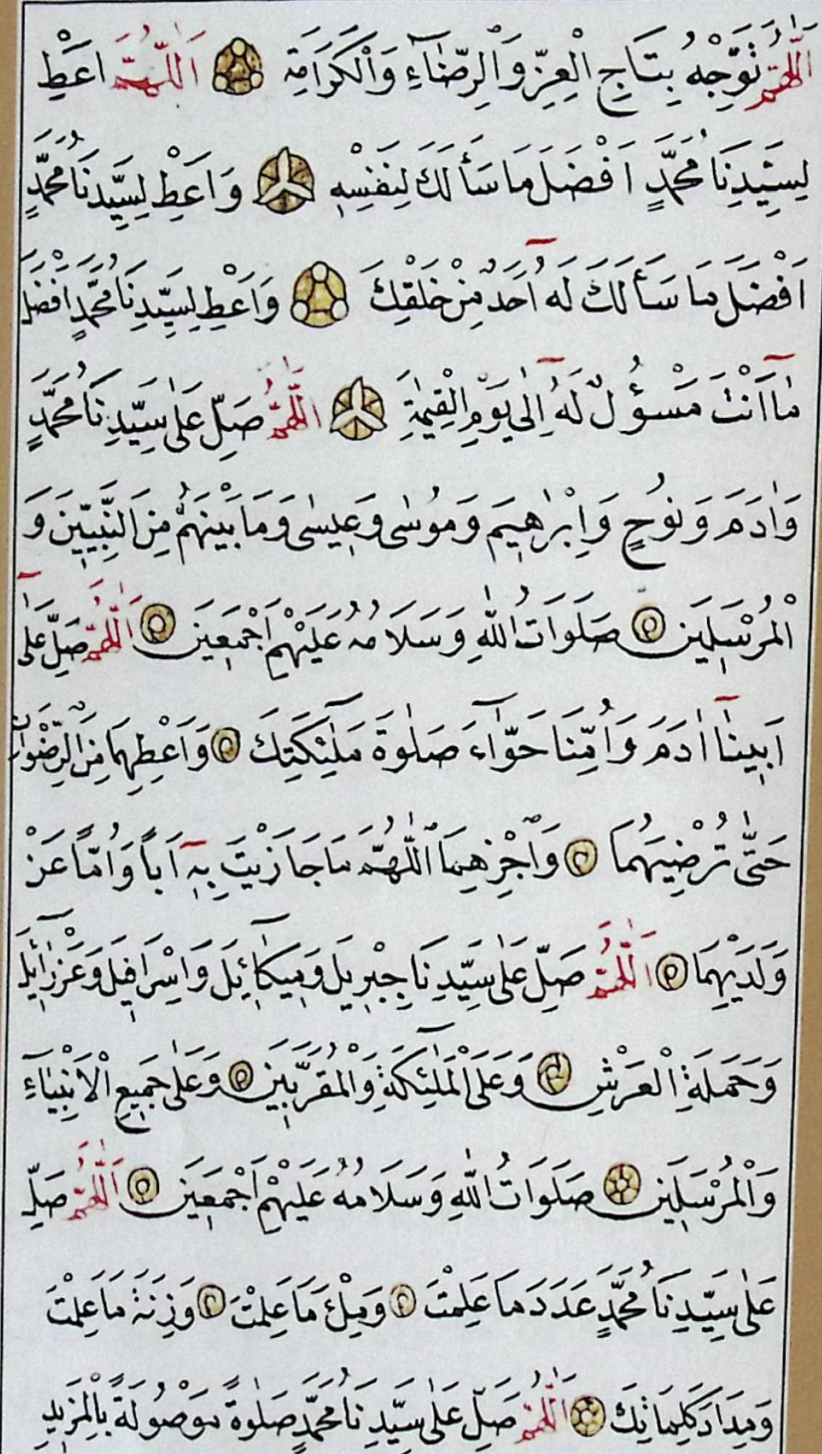 اَللّٰهُمَّ تَوِّجْهُ بِتَاجِ الْعِزِّ وَالرِّضَٓاءِ وَالْكَرَامَةِ اَللّٰهُمَّ اَعْطِ
لِسَيِّدِنَا مُحَمَّدٍ اَفْضَلَ مَا سَأَلَكَ لِنَفْسِهٖ وَاَعْطِ لِسَيِّدِنَا مُحَمَّدٍ
اَفْضَلَ مَا سَأَلَكَ لَهُٓ اَحَدٌ مِنْ خَلْقِكَ وَاَعْطِ لِسَيِّدِنَا مُحَمَّدٍ اَفْضَلَ
مَٓا اَنْتَ مَسْؤُلٌ لَهُٓ اِلٰى يَوْمِ الْقِيٰمَةِ اَللّٰهُمَّ صَلِّ عَلٰى سَيِّدِنَا مُحَمَّدٍ
وَاٰدَمَ وَنُوحٍ وَاِبْرٰهِيمَ وَمُوسٰى وَعِيسٰى وَمَا بَيْنَهُمْ مِنَ النَّبِيّٖنَ وَ
الْمُرْسَلٖينَ صَلَوَاتُ اللّٰهِ وَسَلَامُهُ عَلَيْهِمْ اَجْمَعٖينَ اَللّٰهُمَّ صَلِّ عَلٰٓى
اَبٖينَٓا اٰدَمَ وَاُمِّنَا حَوَّٓاءَ صَلٰوةَ مَلٰٓئِكَتِكَ وَاَعْطِهِمَا مِنَ الرِّضْوَانِ
حَتّٰى تُرْضِيَهُمَا وَاجْزِهِمَا اَللّٰهُمَّ مَا جَازَيْتَ بِهٖٓ اَباً وَاُمًّا عَنْ
وَلَدَيْهِمَا اَللّٰهُمَّ صَلِّ عَلٰى سَيِّدِنَا جِبْرٖيلَ وَمٖيكَٓائِلَ وَاِسْرَافٖلَ وَعَزْرَٓائِلَ
وَحَمَلَةِ الْعَرْشِ وَعَلَى الْمَلٰٓئِكَةِ وَالْمُقَرَّبٖينَ وَعَلٰى جَمٖيعِ الْاَنْبِيَٓاءِ
وَالْمُرْسَلٖينَ صَلَوَاتُ اللّٰهِ وَسَلَامُهُ عَلَيْهِمْ اَجْمَعٖينَ اَللّٰهُمَّ صَلِّ
عَلٰى سَيِّدِنَا مُحَمَّدٍ عَدَدَ مَا عَلِمْتَ وَمِلْئَ مَا عَلِمْتَ وَزِنَةَ مَا عَلِمْتَ
وَمِدَادَ كَلِمَاتِكَ اَللّٰهُمَّ صَلِّ عَلٰى سَيِّدِنَا مُحَمَّدٍ صَلٰوةً مَوْصُولَةً بِالْمَزٖيدِ